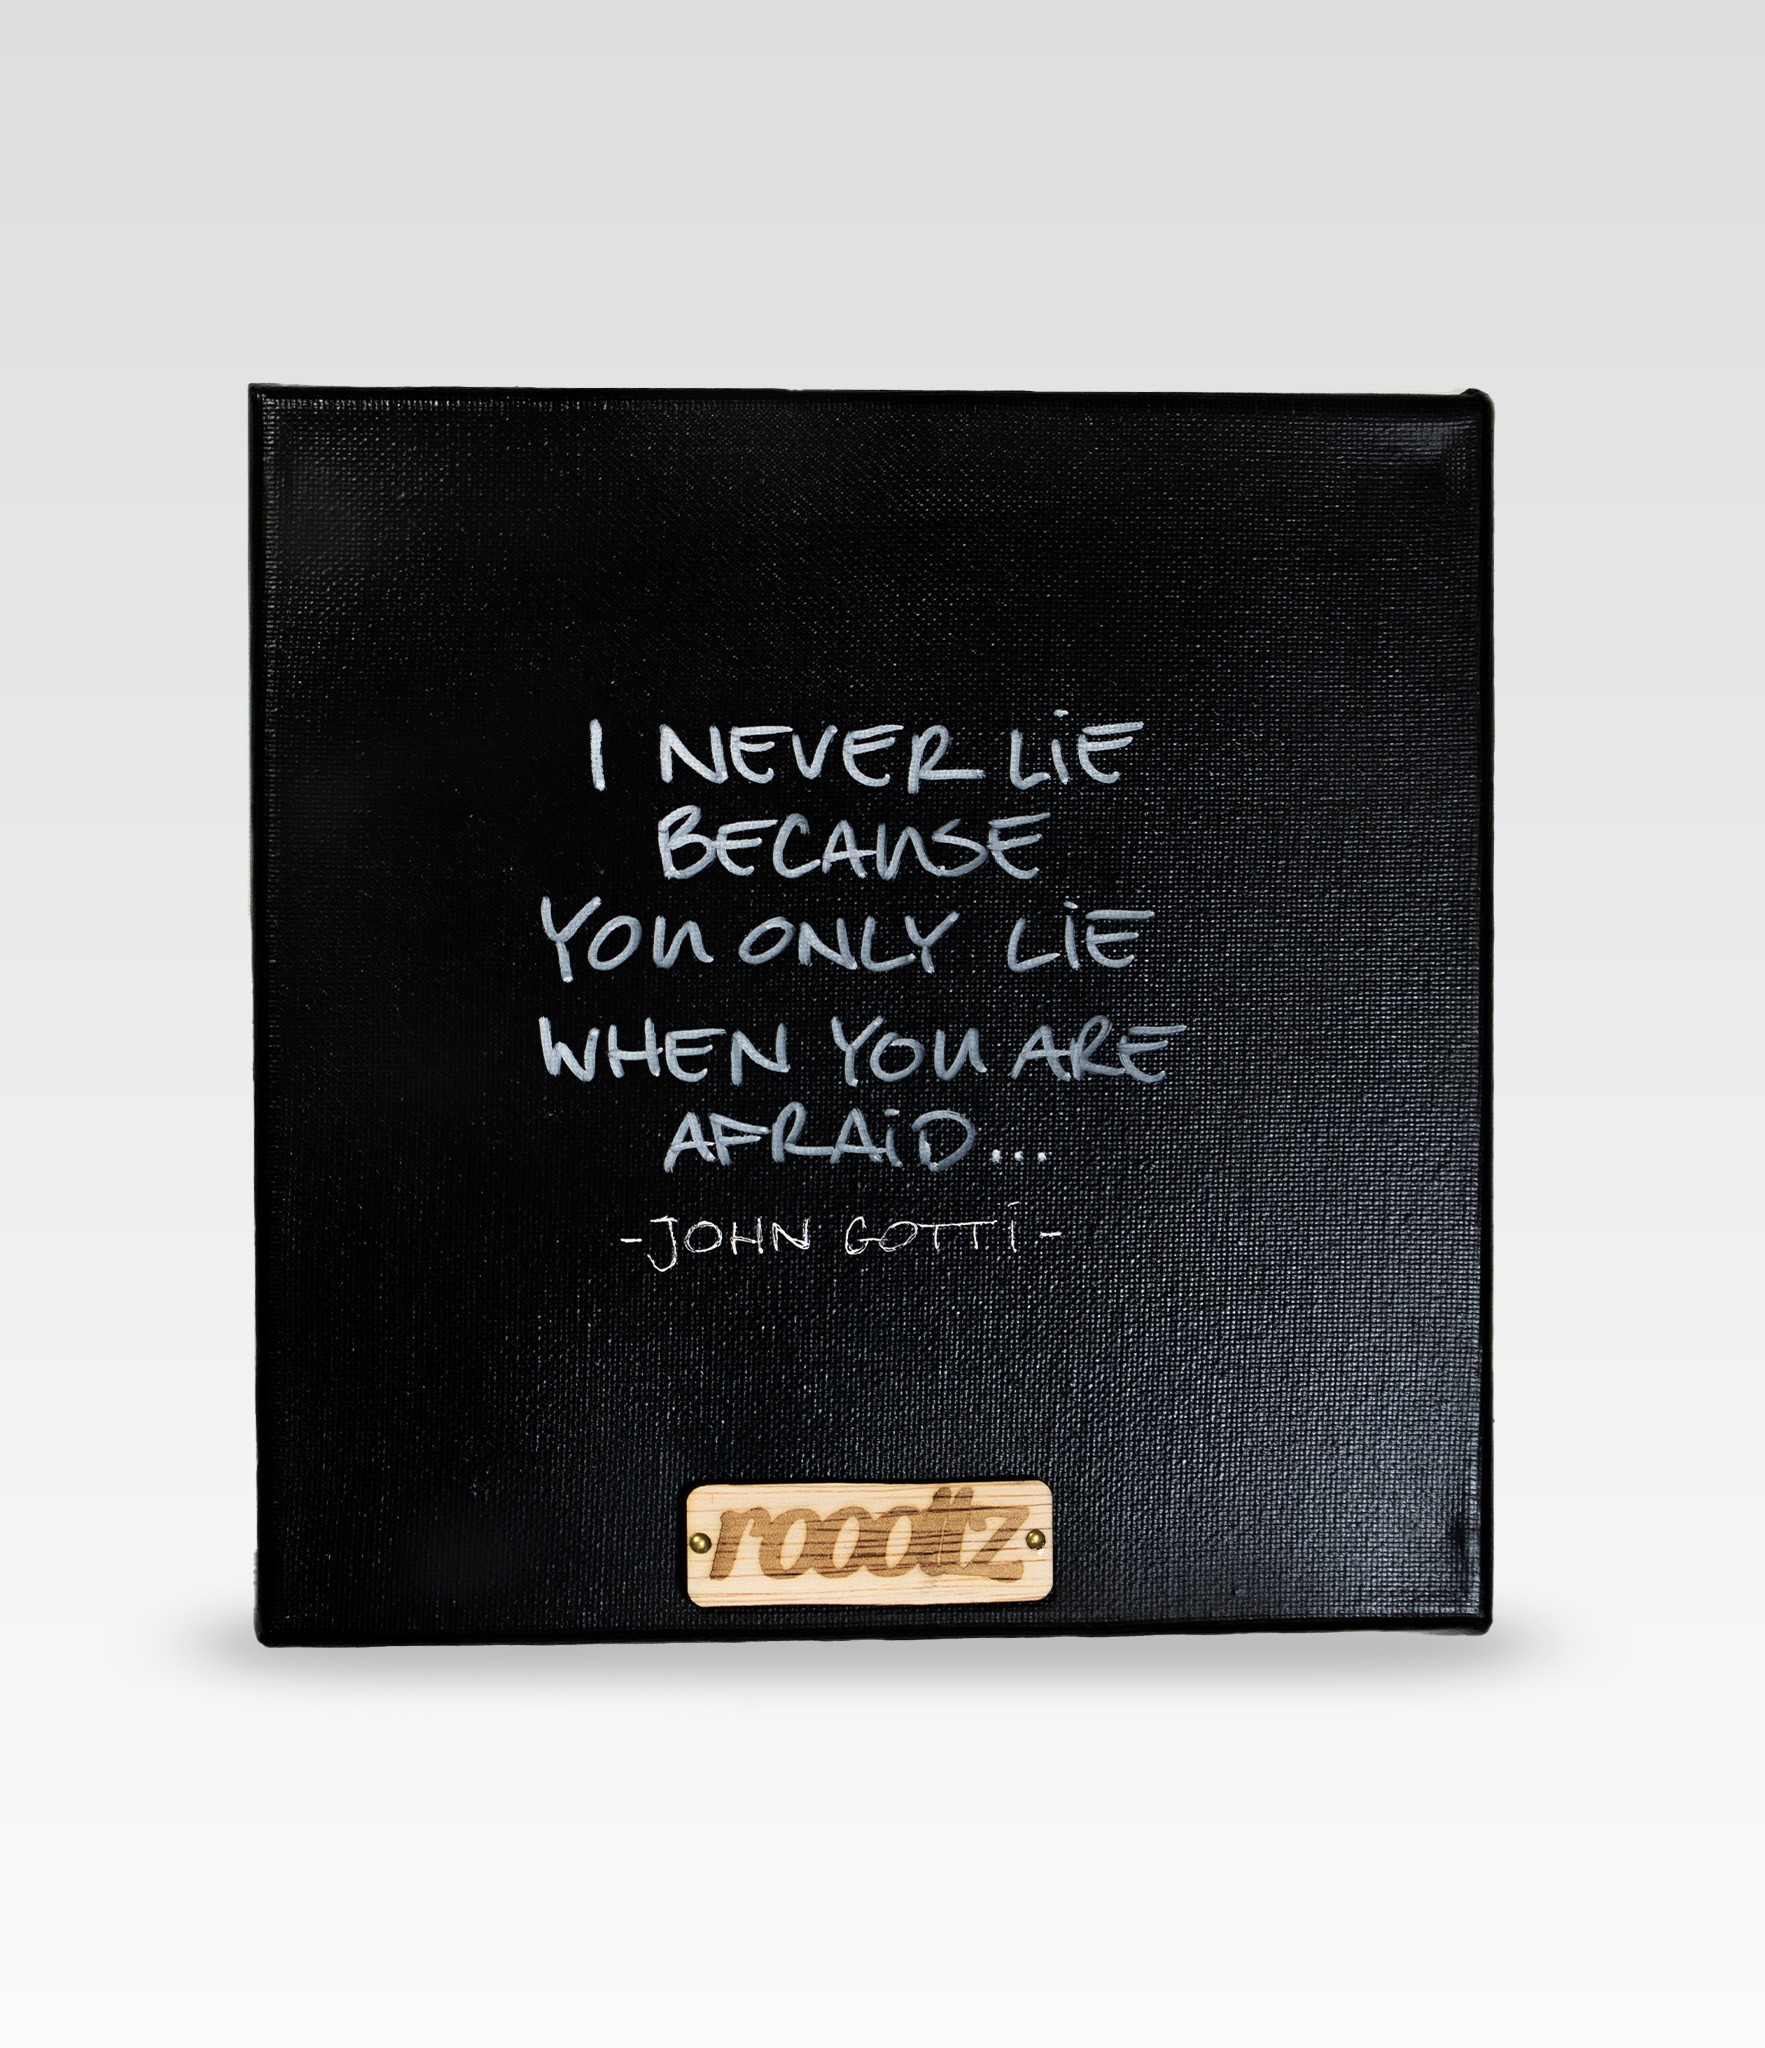 I NEVER LiE
BECAUSE
YOU ONLY LiE
WHEN YOU ARE
AFRAiD...
-JOHN GOTTi-
rooottz